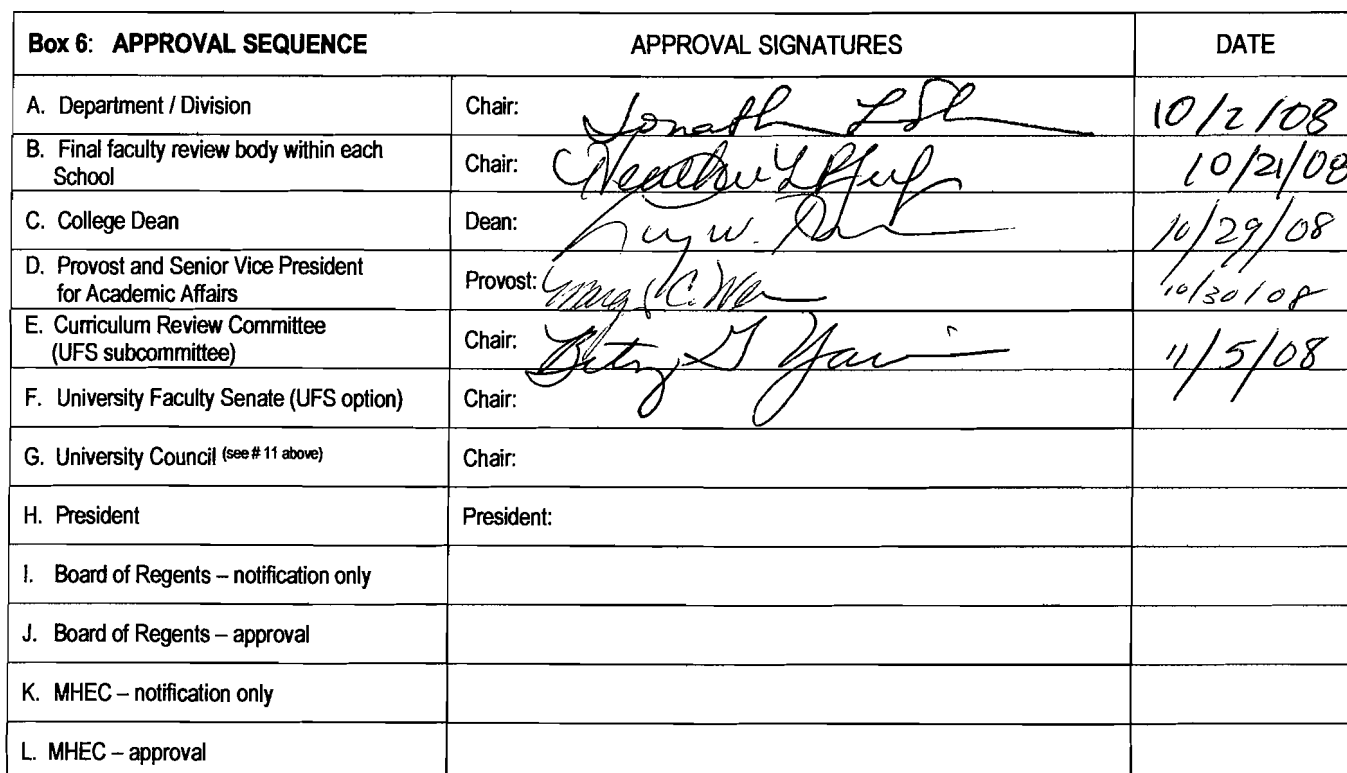 Box 6: APPROVAL SEQUENCE APPROVAL SIGNATURES DATE
A. Department / Division Chair: 10/2/08
B. Final faculty review body within each
School Chair: 10/21/08
C. College Dean Dean: 10/29/08
D. Provost and Senior Vice President
for Academic Affairs Provost: 10/30/08
E. Curriculum Review Committee
(UFS subcommittee) Chair: 11/5/08
F. University Faculty Senate (UFS option) Chair:
G. University Council (see # 11 above) Chair:
H. President President:
I. Board of Regents – notification only
J. Board of Regents – approval
K. MHEC – notification only
L. MHEC – approval